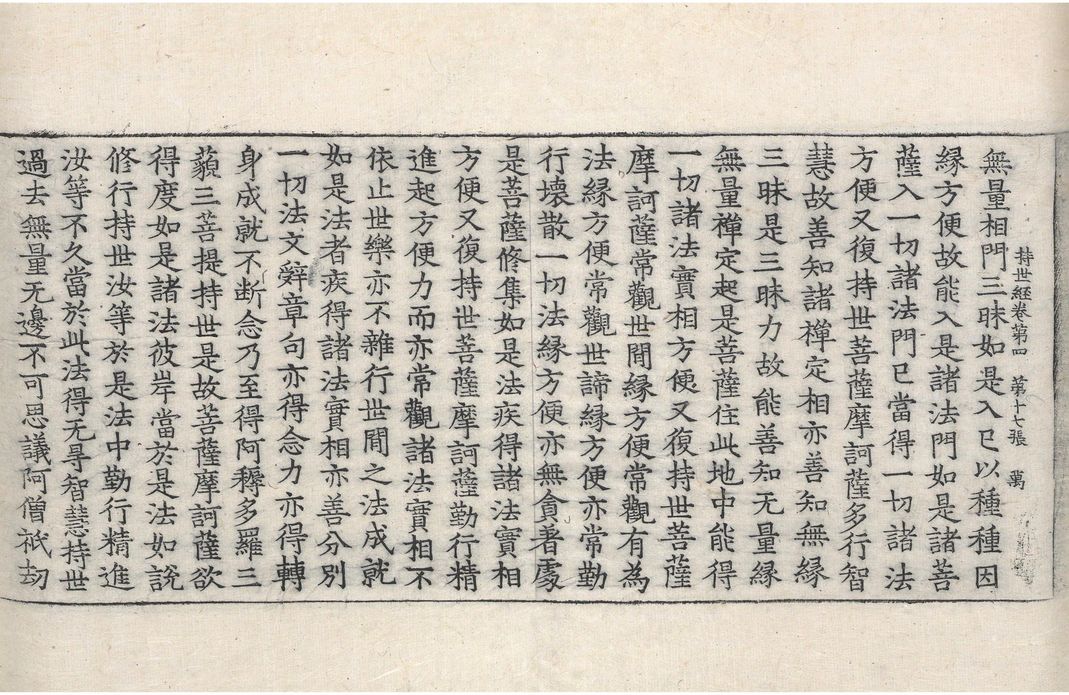 持世經卷第四 第十七張 萬
無量相門三昧如是入已以種種因
緣方便故能入是諸法門如是諸菩
薩入一切諸法門已當得一切諸法
方便又復持世菩薩摩訶薩多行智
慧故善知諸禪定相亦善知無緣
三昧是三昧力故能善知无量緣
無量禪定起是菩薩住此地中能得
一切諸法實相方便又復持世菩薩
摩訶薩常觀世間緣方便常觀有為
法緣方便常觀世諦緣方便亦常勤
行壞散一切法緣方便亦無貪著處
是菩薩修集如是法疾得諸法實相
方便又復持世菩薩摩訶薩勤行精
進起方便力而亦常觀諸法實相不
依止世樂亦不雜行世間之法成就
如是法者疾得諸法實相亦善分別
一切法文辭章句亦得念力亦得轉
身成就不断念乃至得阿耨多羅三
藐三菩提持世是故菩薩摩訶薩欲
得度如是諸法彼岸當於是法如說
修行持世汝等於是法中勤行精進
汝等不久當於此法得无㝵智慧持世
過去無量无邊不可思議阿僧祇劫